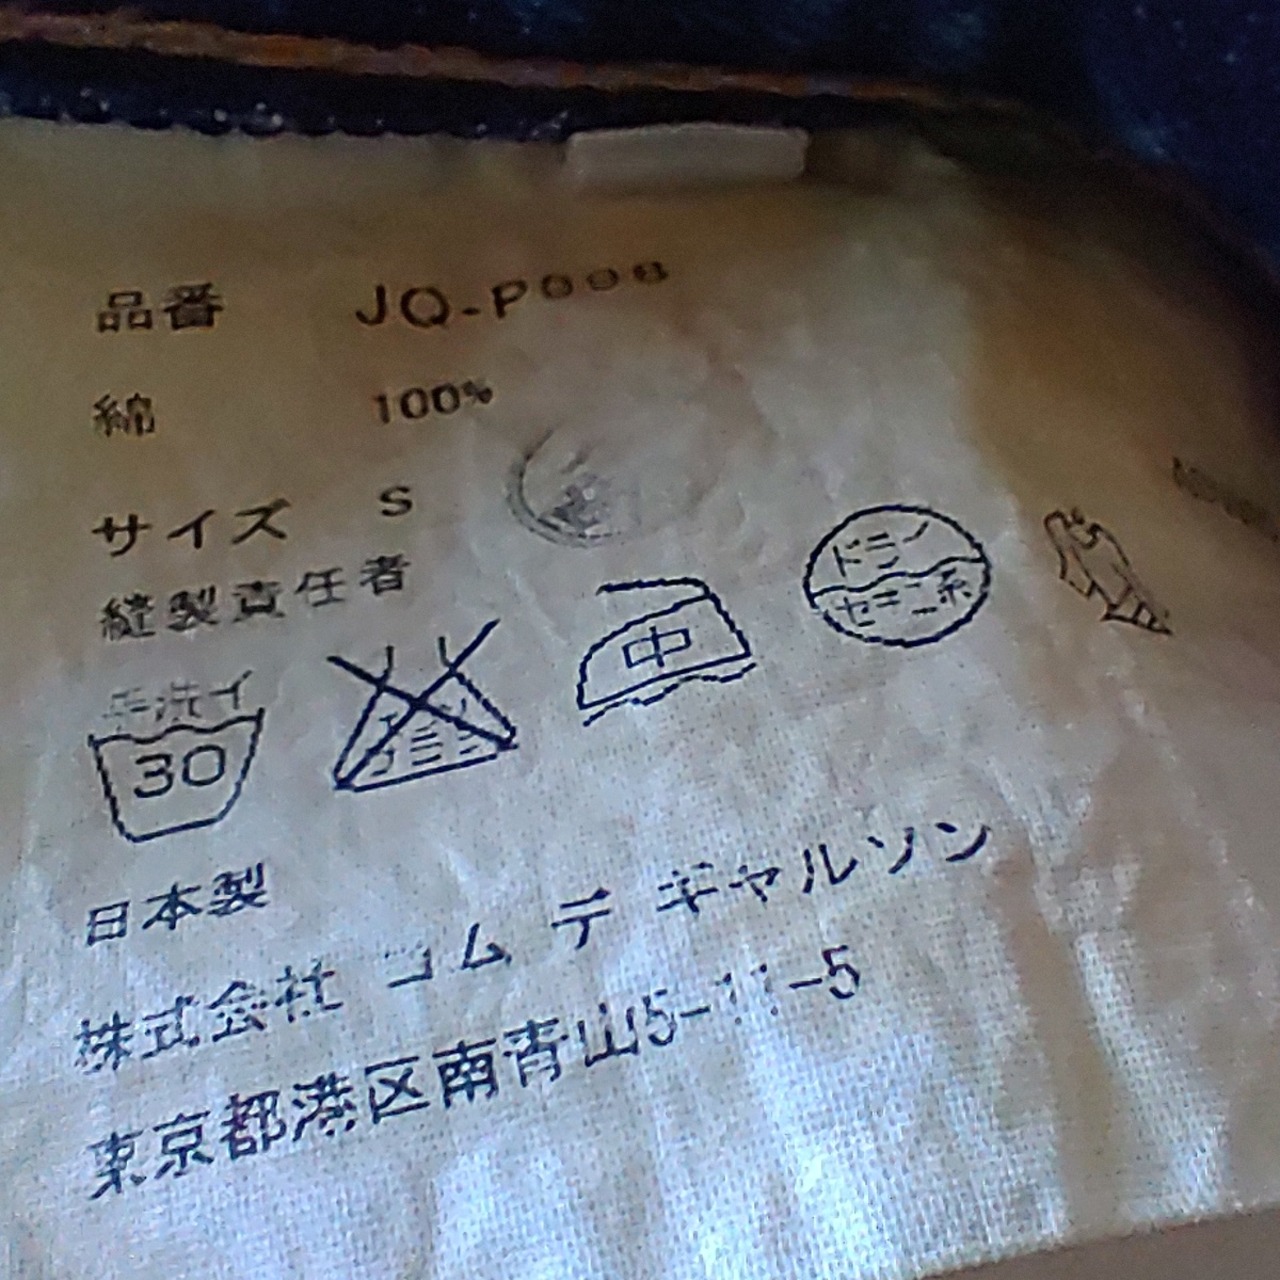 品番 JQ-P008
綿 100%
サイズ S
縫製責任者
手洗イ
30
中
ドライ
セキユ系
日本製
株式会社 コム デ ギャルソン
東京都港区南青山5-11-5